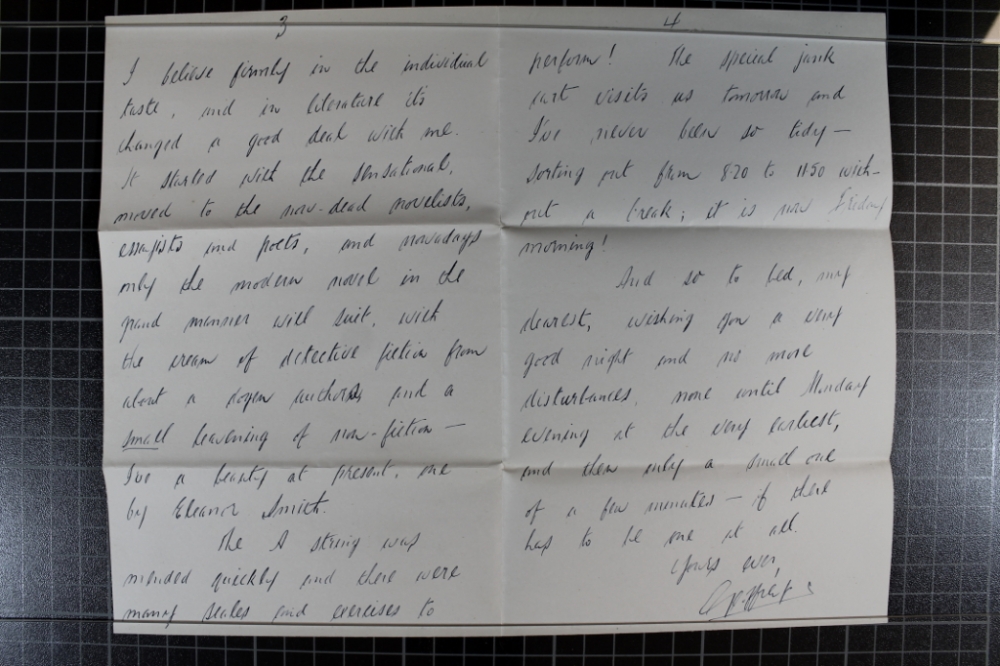 3
I believe firmly in the individual
taste, and in literature its
changed a good deal with me.
It started with the sensational,
moved to the now-dead novelists,
essayists and poets, and nowadays
only the modern novel in the
grand manner will suit, with
the cream of detective fiction from
about a dozen authors and a
small leavening of non-fiction —
I've a beauty at present, one
by Eleanor Smith.
The A string was
mended quickly and there were
many scales and exercises to
4
perform! The special junk
cart visits us tomorrow and
I've never been so tidy —
sorting out from 8.20 to 11.50 with-
out a break; it is now Friday
morning!
And so to bed, my
dearest, wishing you a very
good night and no more
disturbances, none until Monday
evening at the very earliest,
and then only a small one
of a few minutes — if there
has to be one at all.
Yours ever,